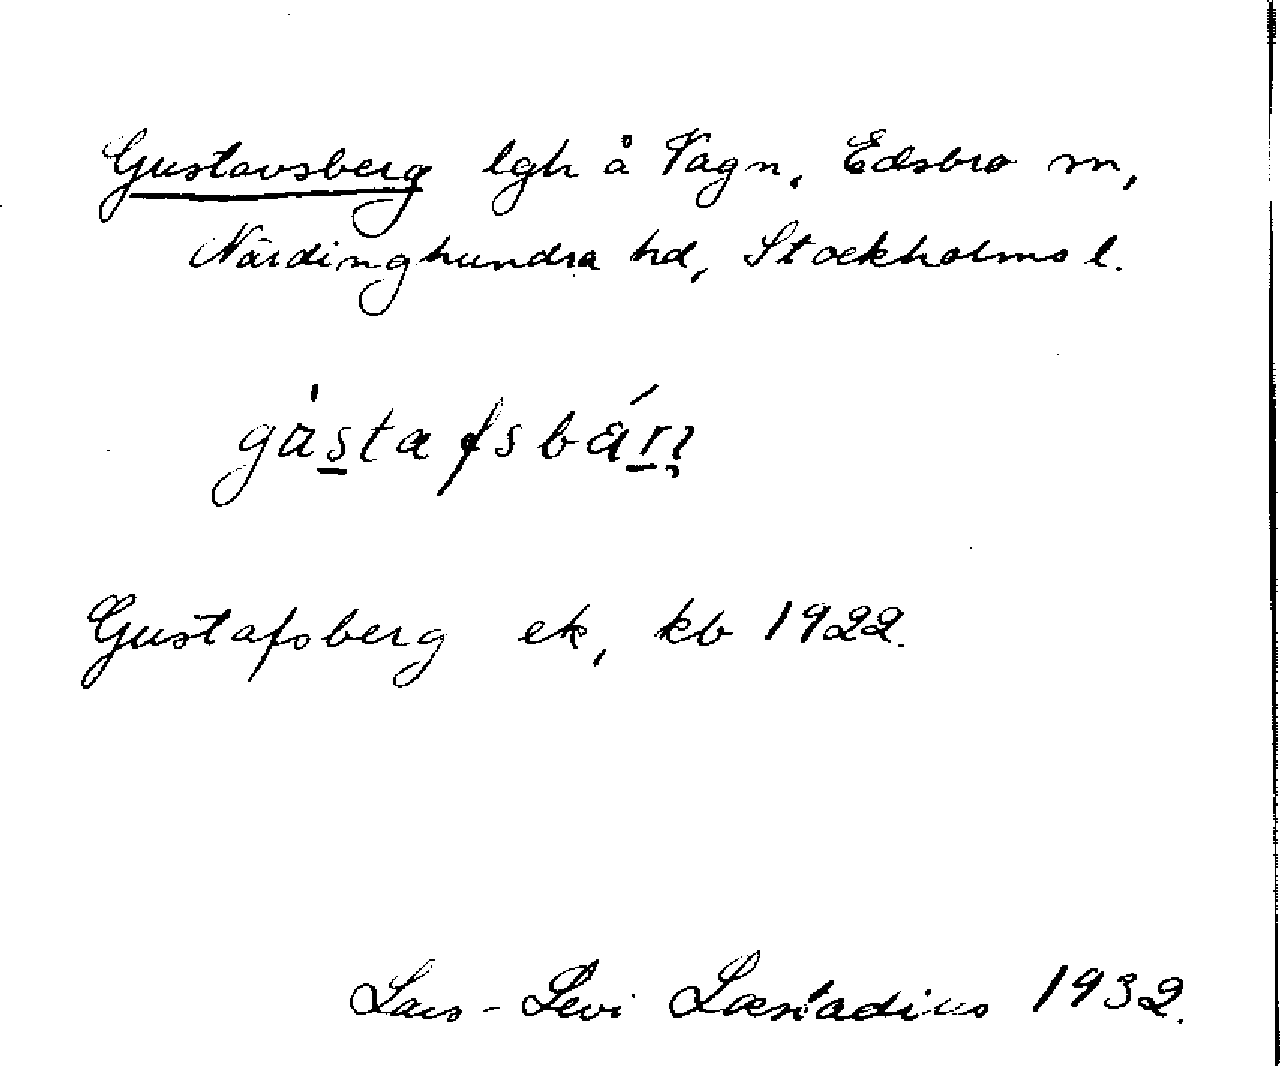 Gustavsberg lgh å Vagn, Edsbro sn,
Närdinghundra hd, Stockholms l.
Gustafsberg ek, kb 1922.
Lars-Levi Læstadius 1932.